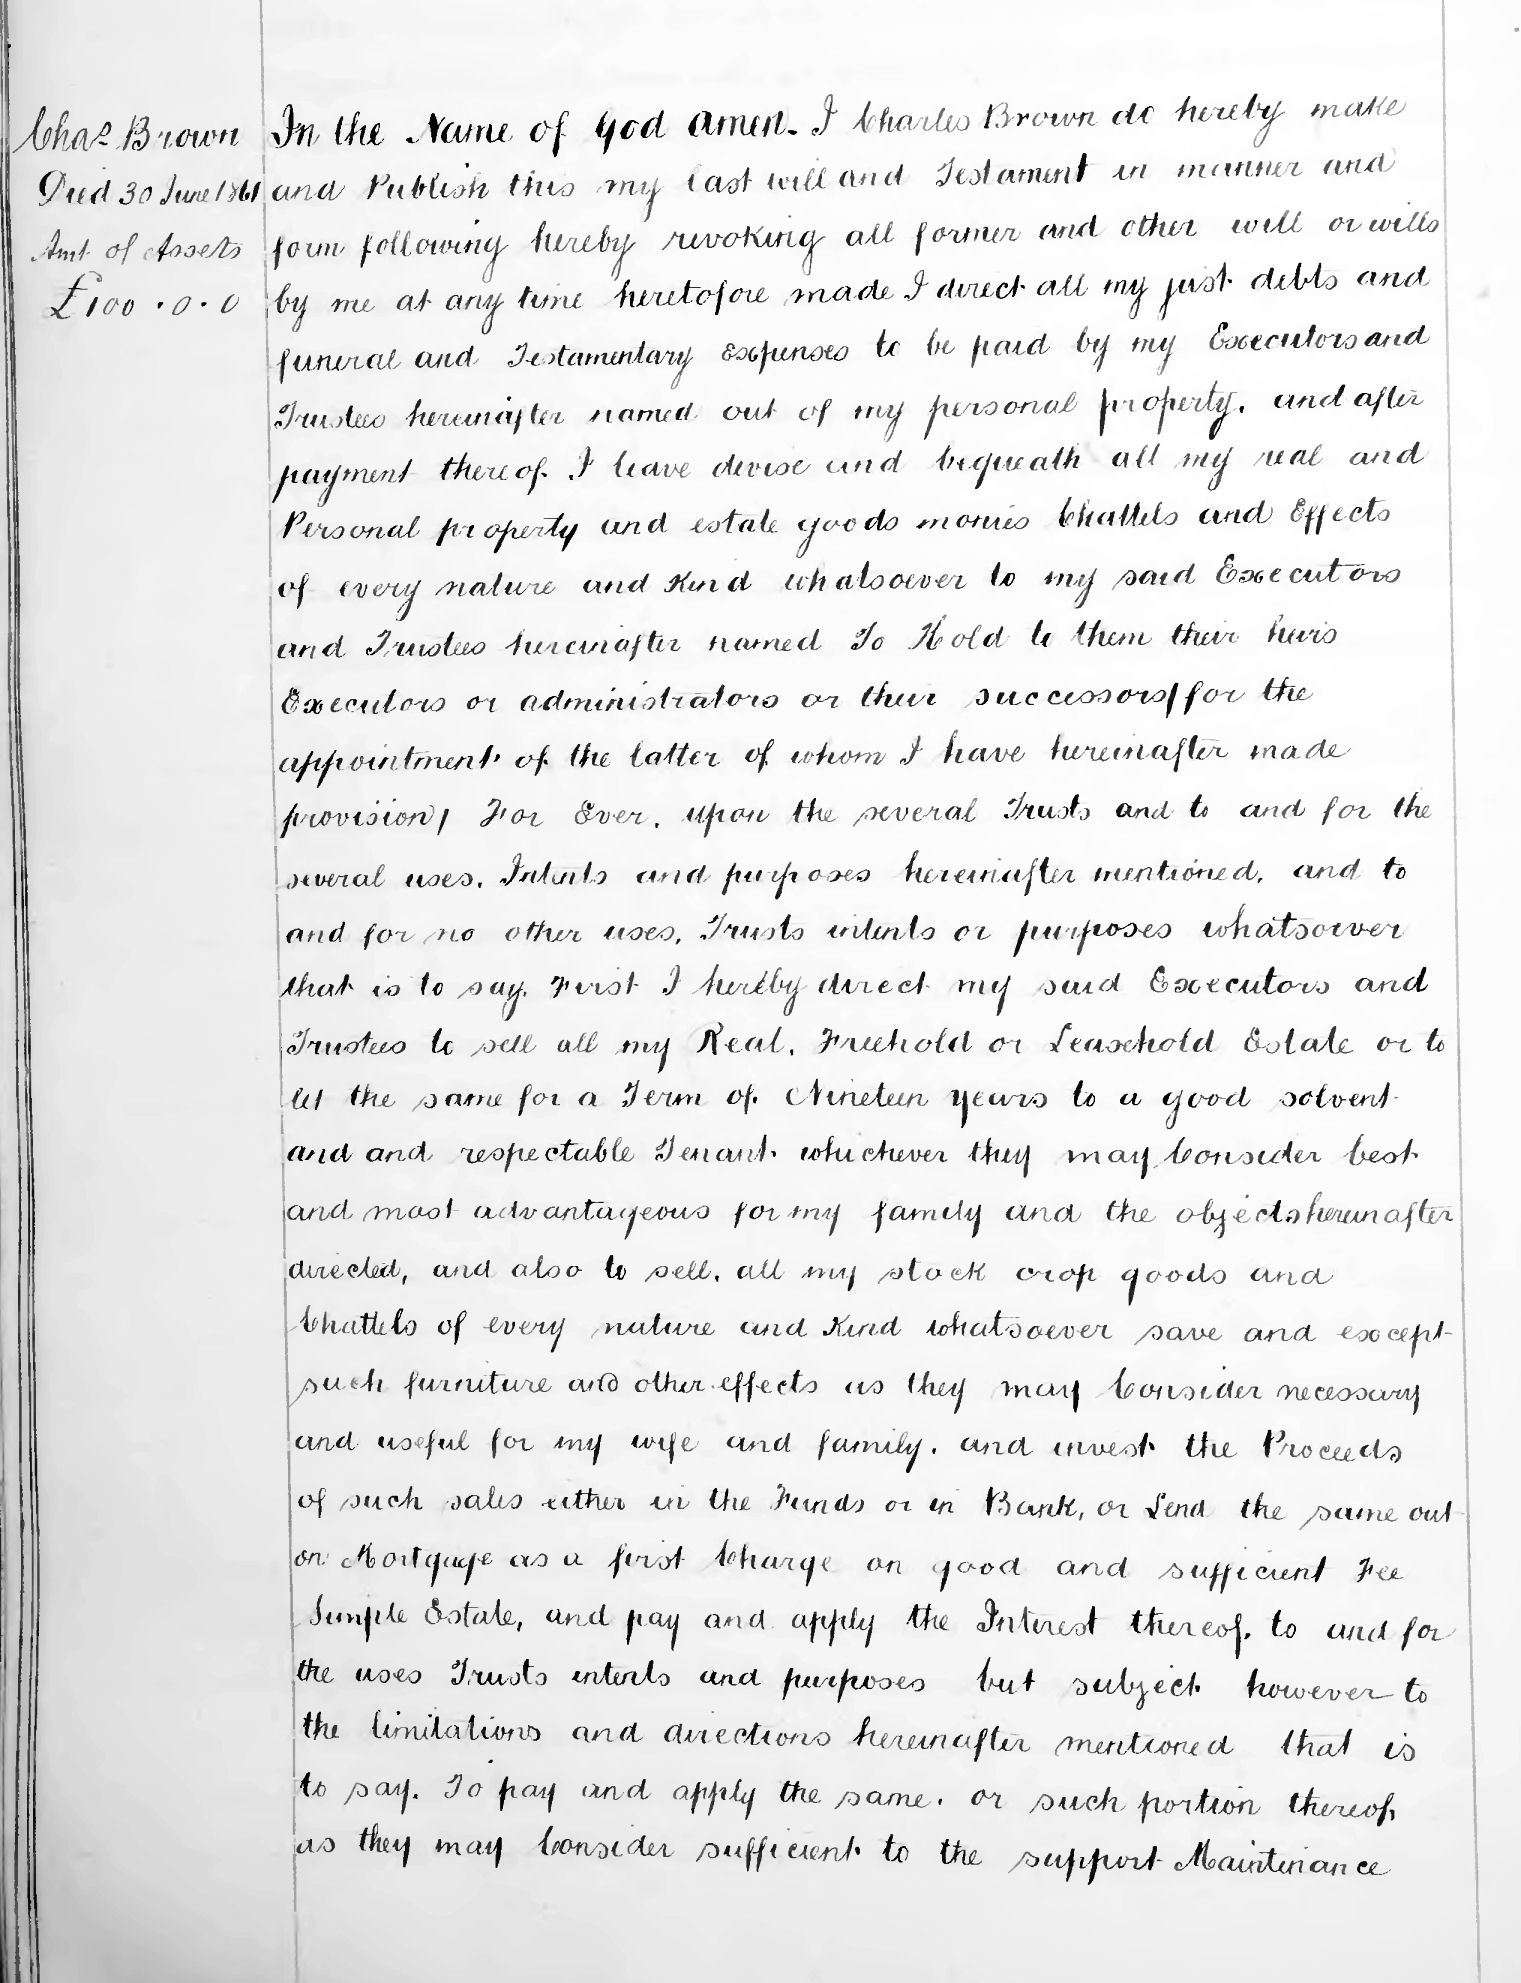 Chas. Brown
Died 30 June 1861
Amt. of Assets
£100.0.0
In the Name of God Amen. I Charles Brown do hereby make
and Publish this my last will and Testament in manner and
form following hereby revoking all former and other will or wills
by me at any time heretofore made I direct all my just debts and
funeral and Testamentary Expenses to be paid by my Executors and
Trustees hereinafter named out of my personal property. and after
payment thereof I leave devise and bequeath all my real and
Personal property and estate goods monies Chattels and Effects
of every nature and Kind whatsoever to my said Executors
and Trustees hereinafter named To Hold to them their heirs
Executors or administrators or their successors/for the
appointment of the latter of whom I have hereinafter made
provision/ For Ever. upon the several Trusts and to and for the
several uses. Intents and purposes hereinafter mentioned. and to
and for no other uses. Trusts intents or purposes whatsoever
that is to say. First I hereby direct my said Executors and
Trustees to sell all my Real. Freehold or Leasehold Estate or to
let the same for a Term of Nineteen years to a good solvent
and and respectable Tenant whichever they may Consider best
and most advantageous for my family and the objects hereinafter
directed, and also to sell. all my stock crop goods and
Chattels of every nature and Kind whatsoever save and except
such furniture and other effects as they may Consider necessary
and useful for my wife and family. and invest the Proceeds
of such sales either in the Funds or in Bank, or Lend the same out
on Mortgage as a first Charge on good and sufficient Fee
Simple Estate, and pay and apply the Interest thereof. to and for
the uses Trusts intents and purposes but subject however to
the limitations and directions hereinafter mentioned that is
to say. To pay and apply the same. or such portion thereof,
as they may Consider sufficient to the support Maintenance